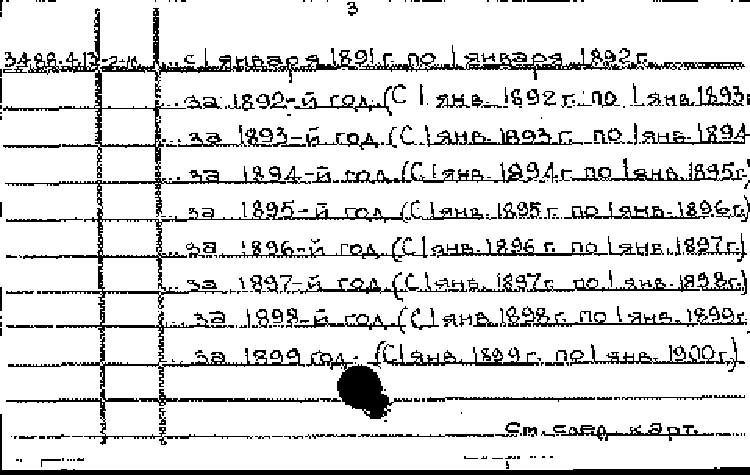 3
... с 1 января 1891 г. по 1 января 1892 г.
... за 1892-й год (С 1 янв. 1892 г. по 1 янв. 1893
... за 1893-й год (С 1 янв. 1893 г. по 1 янв. 1894
... за 1894-й год (С 1 янв. 1894 г. по 1 янв. 1895 г.)
... за 1895-й год (С 1 янв. 1895 г. по 1 янв. 1896 г.)
... за 1896-й год (С 1 янв. 1896 г. по 1 янв. 1897 г.)
... за 1897-й год (С 1 янв. 1897 г. по 1 янв. 1898 г.)
... за 1898-й год (С 1 янв. 1898 г. по 1 янв. 1899 г.
... за 1899 год. (С 1 янв. 1899 г. по 1 янв. 1900 г.)
См. след. карт.